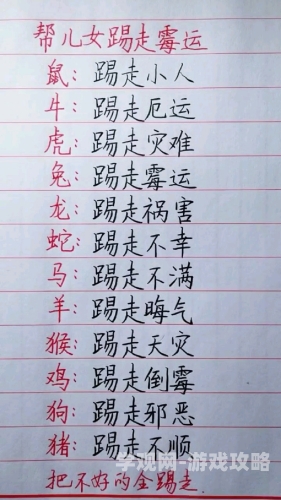 帮儿女踢走霉运
鼠：踢走小人
牛：踢走厄运
虎：踢走灾难
兔：踢走霉运
龙：踢走祸害
蛇：踢走不幸
马：踢走不满
羊：踢走晦气
猴：踢走天灾
鸡：踢走倒霉
狗：踢走邪恶
猪：踢走不顺
把不好的全踢走.
学观网-游戏攻略